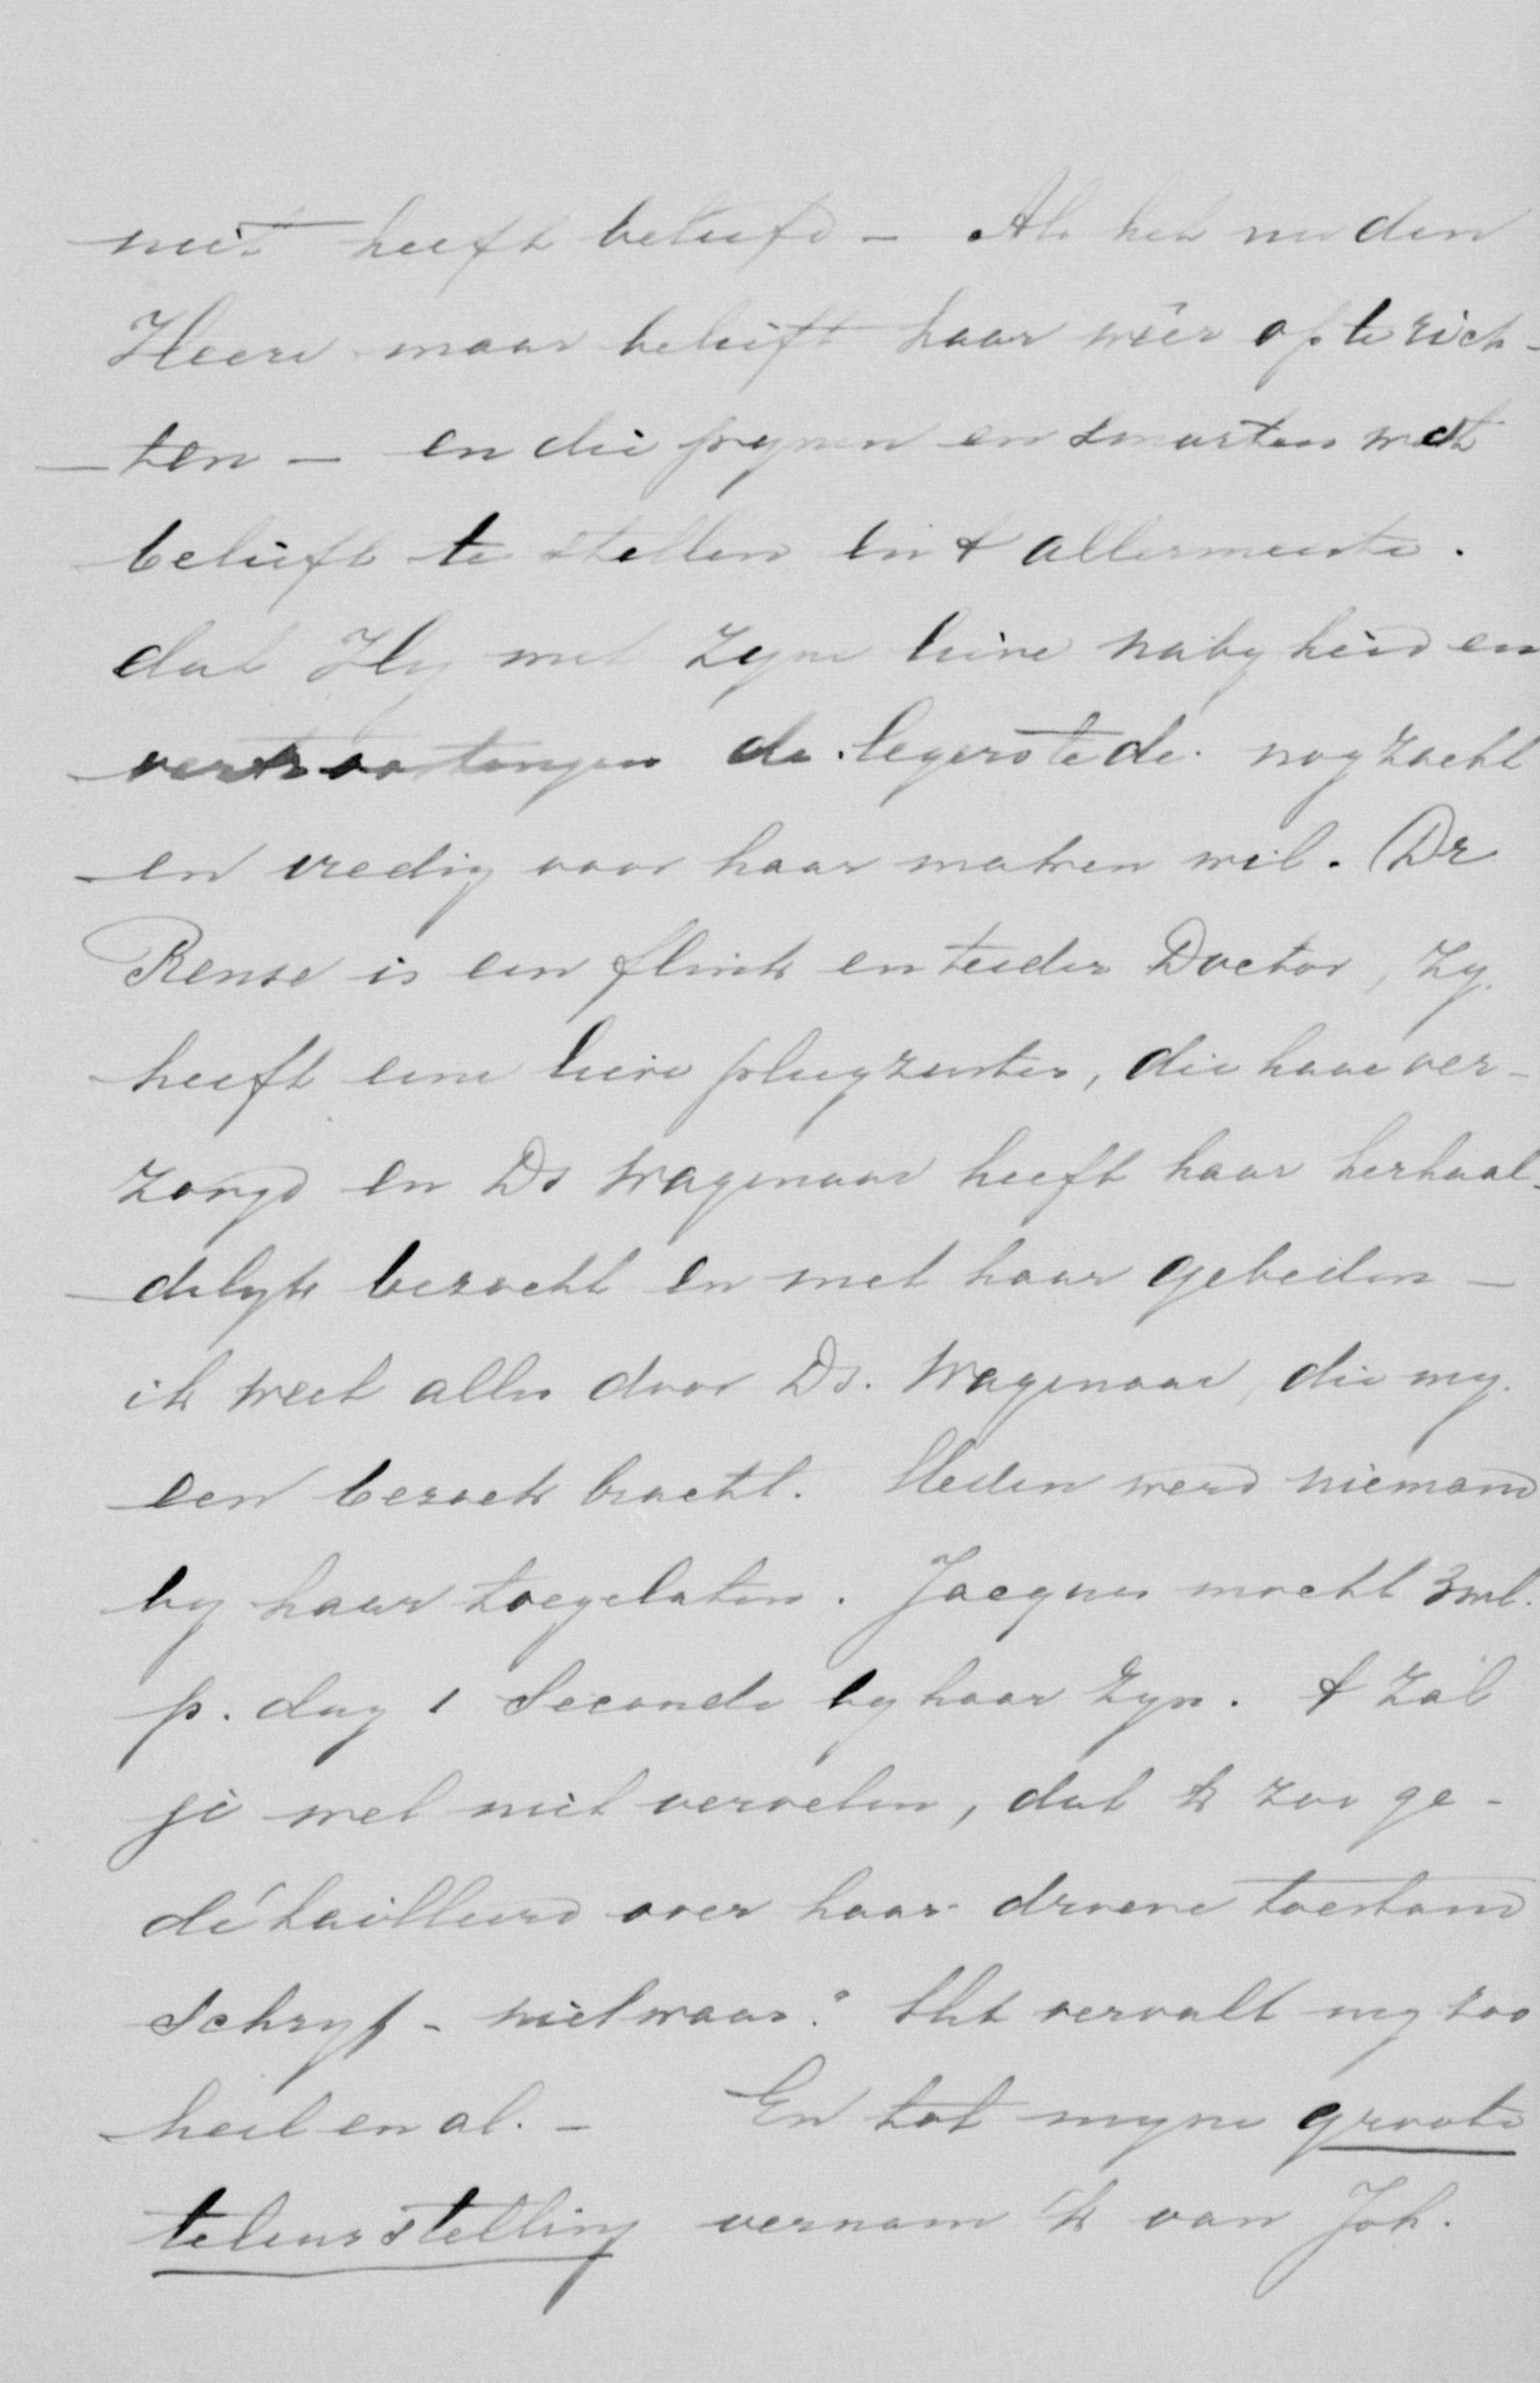 niet heeft beliefd – Als het nu den
Heere maar belieft haar wêer op te rich-
-ten – en die pynen en smarten wat
belieft te stellen en 't allermeeste.
dat Hy met Zyne lieve nabyheid en
vertroostingen de legerstede nog zacht
en vredig voor haar maken wil. Dr
Rense is een flink en teeder Doctor, Zy
heeft eene lieve pleegzuster, die haar ver-
zorgd en Ds Wagenaar heeft haar herhaal-
delyk bezocht en met haar gebeden –
ik weet alles door Ds. Wagenaar, die my
een bezoek bracht. Heden werd niemand
by haar toegelaten. Jacques mocht 3 ml.
p. dag 1 Seconde by haar zyn. 't Zal
je wel niet vervelen, dat 'k zoo ge-
détailleerd over haar droeve toestand
Schryf – niet waar? Het vervult my zoo
heel en al. – En tot myne groote
teleurstelling vernam 'k van Joh.